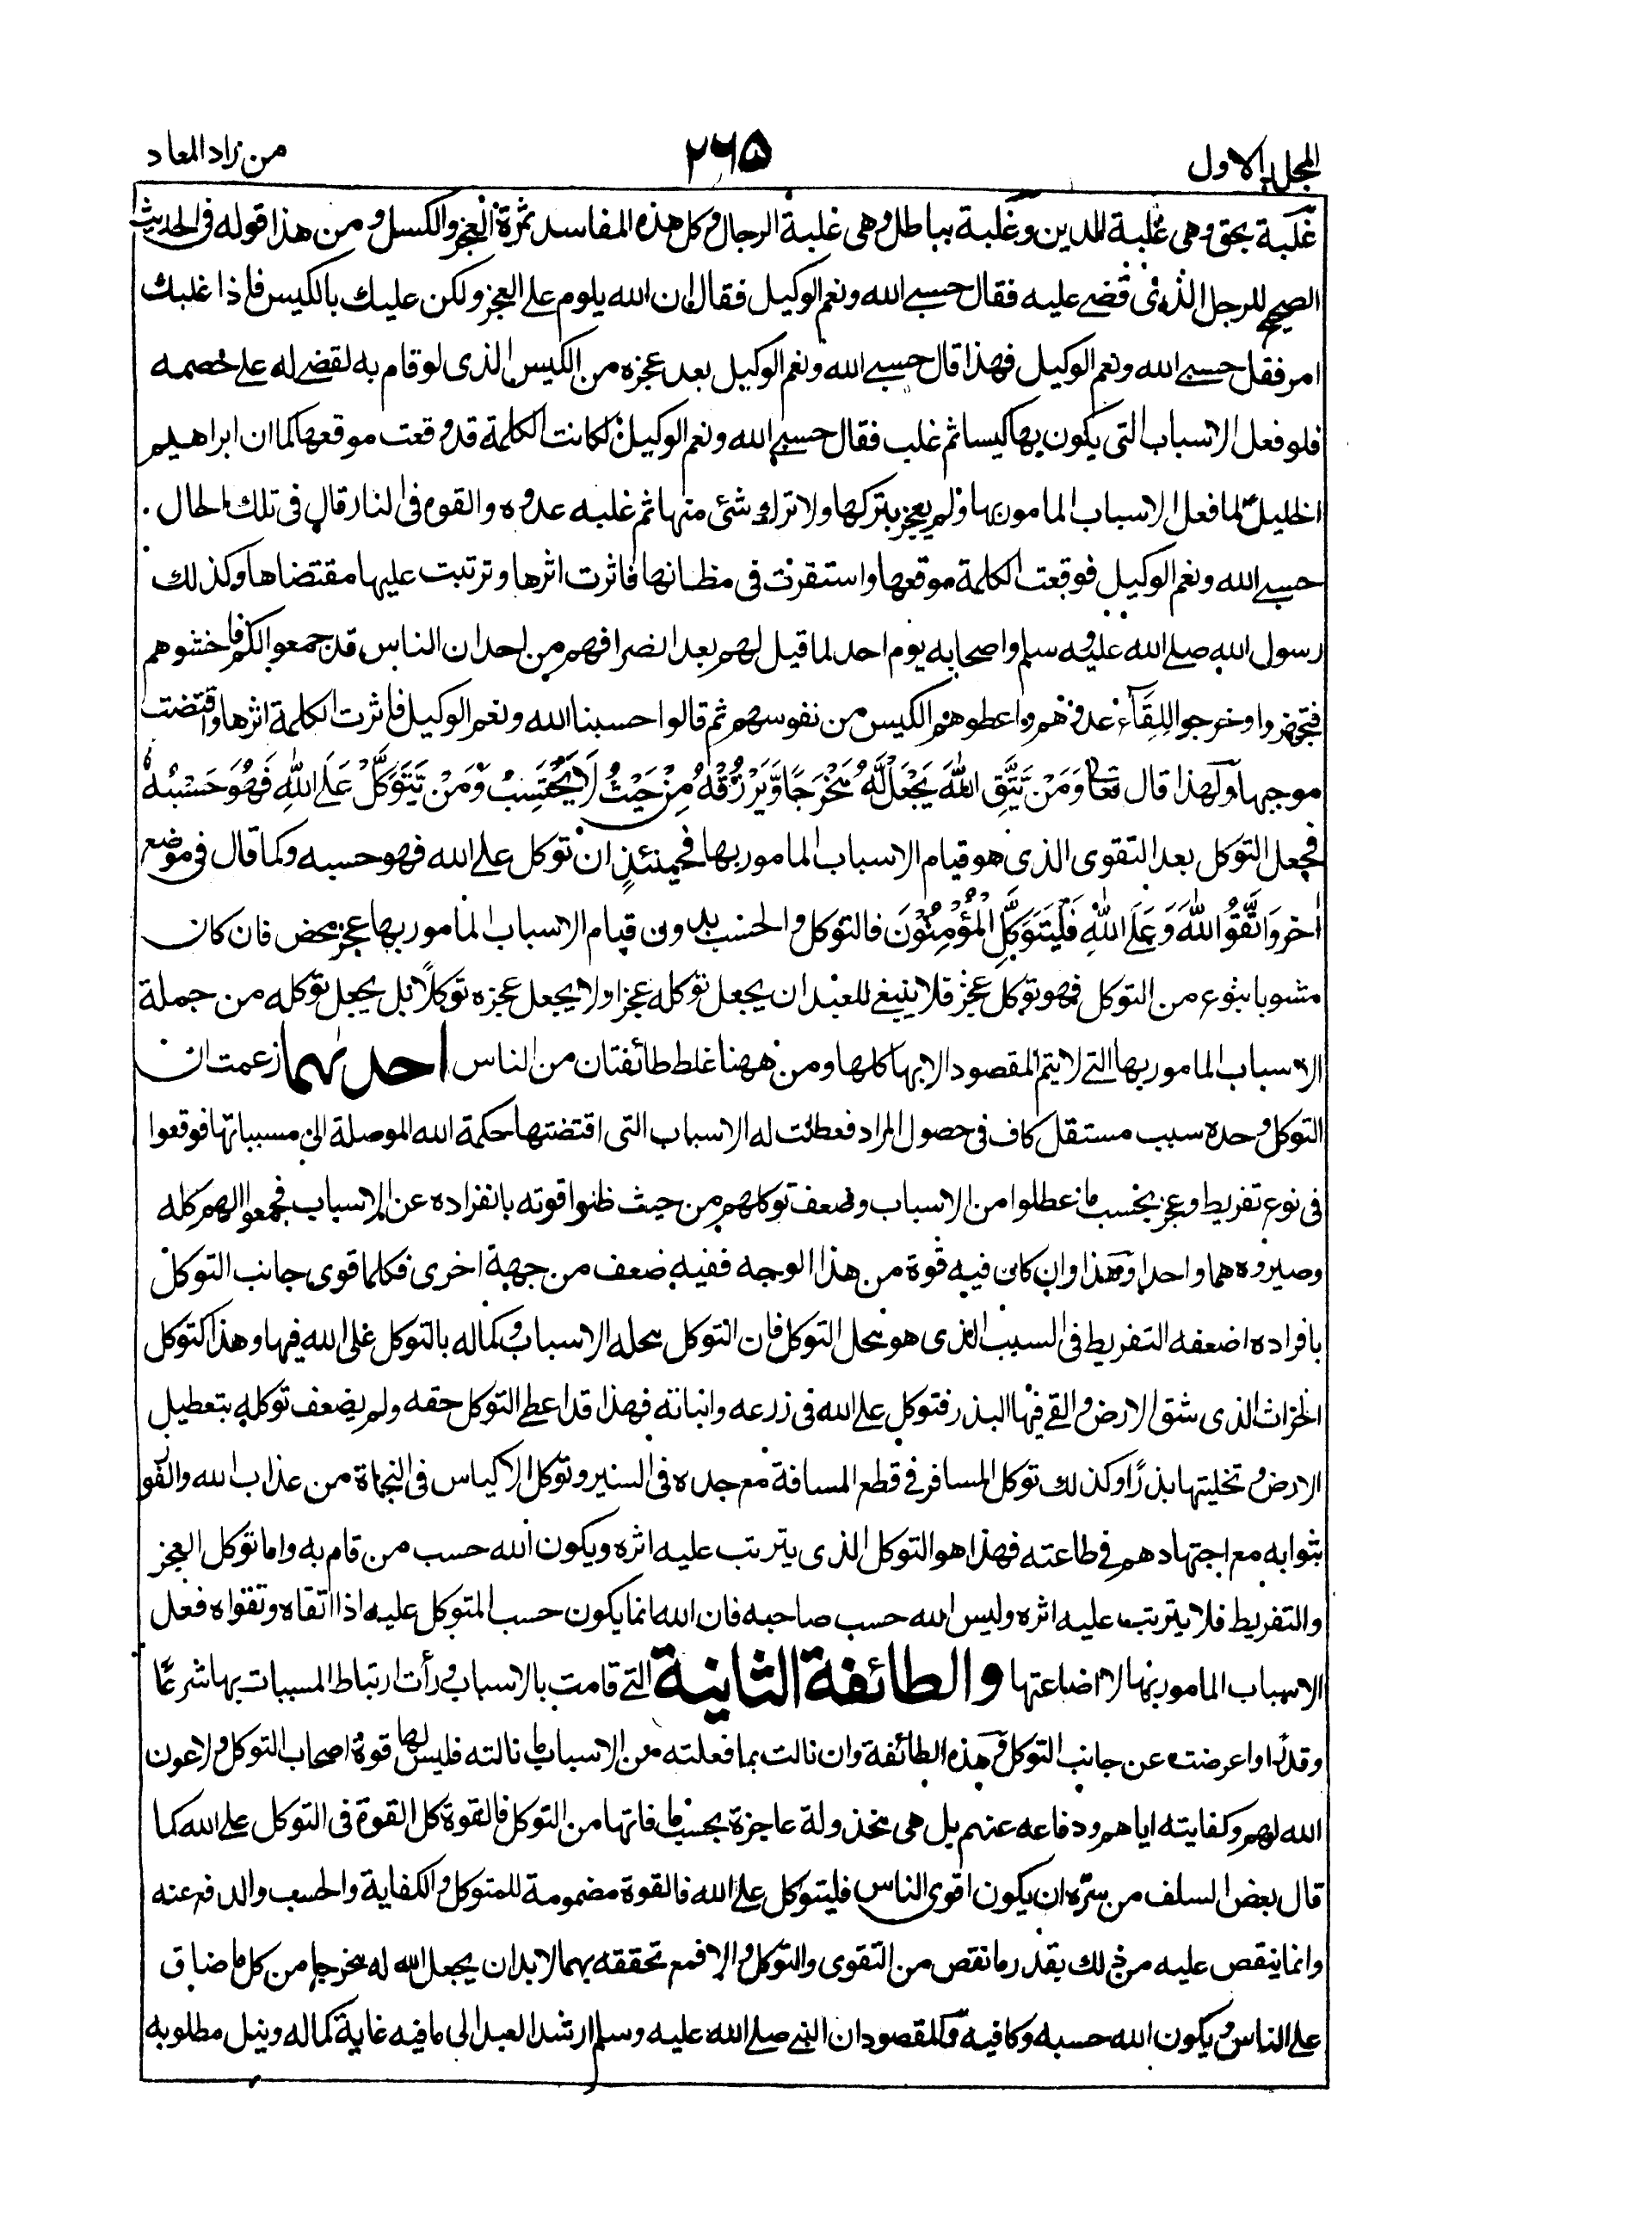 المجلد الاول
٢٦٥
من زاد المعاد
غلبة بحق وهى غلبة الدين وغلبة بباطل وهى غلبة الرجال وكل هذه المفاسد ثمرة العجز والكسل ومن هذا قوله فى الحديث
الصحيح للرجل الذى قضى عليه فقال حسبى الله ونعم الوكيل فقال ان الله يلوم على العجز ولكن عليك بالكيس فاذا غلبك
امر فقل حسبى الله ونعم الوكيل فهذا قال حسبى الله ونعم الوكيل بعد عجزه من الكيس الذى لو قام به لقضى له على خصمه
فلو فعل الاسباب التى يكون بها كيسا ثم غلب فقال حسبى الله ونعم الوكيل لكانت الكلمة قد وقعت موقعها كما ان ابراهيم
الخليل لما فعل الاسباب المامور بها ولم يعجز بتركها ولا ترك شئ منها ثم غلبه عدوه والقوه فى النار قال فى تلك الحال
حسبى الله ونعم الوكيل فوقعت الكلمة موقعها واستقرت فى مظانها فاثرت اثرها وترتبت عليها مقتضاها وكذلك
رسول الله صلى الله عليه وسلم واصحابه يوم احد لما قيل لهم بعد انصرافهم من احد ان الناس قد جمعوا لكم فاخشوهم
فتجهزوا وخرجوا لِلِقَآء عدوهم واعطوهم الكيس من نفوسهم ثم قالوا حسبنا الله ونعم الوكيل فاثرت الكلمة اثرها واقتضت
موجبها ولهذا قال تعا وَمَنْ يَّتَّقِ اللّٰهَ يَجْعَلْ لَّهُ مَخْرَجًا وَّيَرْزُقْهُ مِنْ حَيْثُ لَا يَحْتَسِبُ وَمَنْ يَّتَوَكَّلْ عَلَى اللّٰهِ فَهُوَ حَسْبُهُ
فجعل التوكل بعد التقوى الذى هو قيام الاسباب المامور بها فحينئذٍ ان توكل على الله فهو حسبه وكما قال فى موضع
اخر وَاتَّقُوا اللّٰهَ وَعَلَى اللّٰهِ فَلْيَتَوَكَّلِ الْمُؤْمِنُوْنَ فالتوكل والحسب بدون قيام الاسباب المامور بها عجز محض فان كان
مشوبا بنوع من التوكل فهو توكل عجز فلا ينبغى للعبد ان يجعل توكله عجزا ولا يجعل عجزه توكلًا بل يجعل توكله من جملة
الاسباب المامور بها التى لا يتم المقصود الا بها كلها ومن ههنا غلط طائفتان من الناس احدٰهما زعمت ان
التوكل وحده سبب مستقل كاف فى حصول المراد فعطلت له الاسباب التى اقتضتها حكمة الله الموصلة الى مسبباتها فوقعوا
فى نوع تفريط وعجز بحسب ما عطلوا من الاسباب وضعف توكلهم من حيث ظنوا قوته بانفراده عن الاسباب فجمعوا الهم كله
وصيروه هما واحدا وهذا وان كان فيه قوة من هذا الوجه ففيه ضعف من جهة اخرى فكلما قوى جانب التوكل
بافراده اضعفه التفريط فى السبب الذى هو محل التوكل فان التوكل محله الاسباب وكماله بالتوكل على الله فيها وهذا كتوكل
الحراث الذى شق الارض والقى فيها البذر فتوكل على الله فى زرعه وانباته فهذا قد اعطى التوكل حقه ولم يضعف توكله بتعطيل
الارض وتخليتها بذرًا وكذلك توكل المسافر فى قطع المسافة مع جده فى السير وتوكل الاكياس فى النجاة من عذاب الله والفو
بثوابه مع اجتهادهم فى طاعته فهذا هو التوكل الذى يترتب عليه اثره ويكون الله حسب من قام به واما توكل العجز
والتفريط فلا يترتب عليه اثره وليس الله حسب صاحبه فان الله انما يكون حسب المتوكل عليه اذا اتقاه وتقواه فعل
الاسباب المامور بها لا اضاعتها والطائفة الثانية التى قامت بالاسباب ورأت ارتباط المسببات بها شرعًا
وقدرا واعرضت عن جانب التوكل وهذه الطائفة وان نالت بما فعلته من الاسباب ما نالته فليس لها قوة اصحاب التوكل ولا عون
الله لهم وكفايته اياهم ودفاعه عنهم بل هى مخذولة عاجزة بحسب ما فاتها من التوكل فالقوة كل القوة فى التوكل على الله كما
قال بعض السلف من سرّه ان يكون اقوى الناس فليتوكل على الله فالقوة مضمومة للمتوكل والكفاية والحسب والدفع عنه
وانما ينقص عليه من ذلك بقدر ما نقص من التقوى والتوكل والا فمع تحققه بهما لابد ان يجعل الله له مخرجا من كل ما ضاق
على الناس ويكون الله حسبه وكافيه والمقصود ان النبى صلى الله عليه وسلم ارشد العبد الى ما فيه غاية كماله ونيل مطلوبه